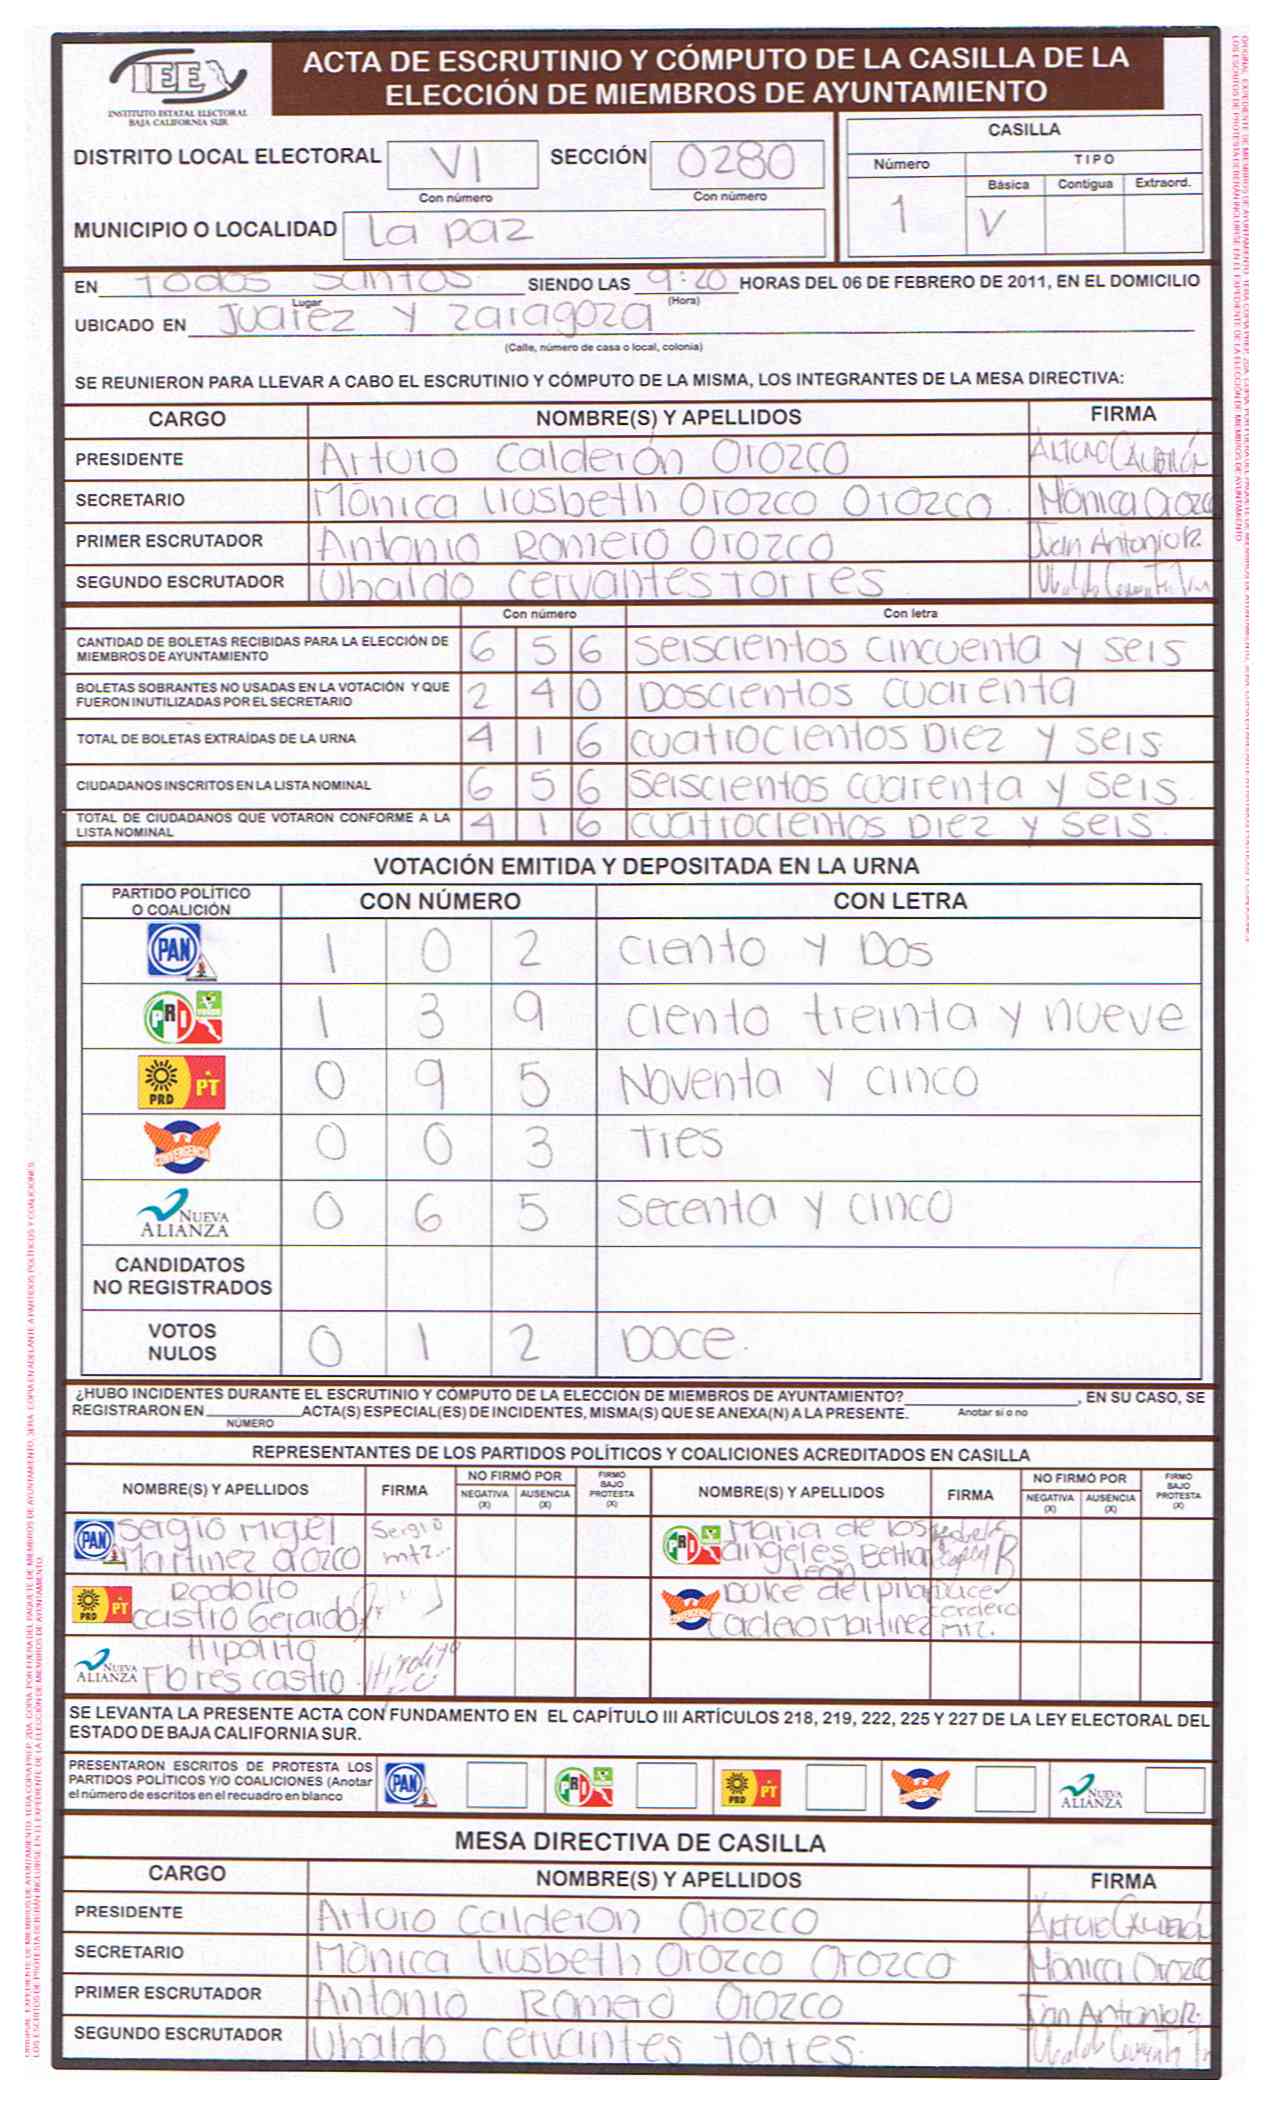 IEE
INSTITUTO ESTATAL ELECTORAL
BAJA CALIFORNIA SUR
ACTA DE ESCRUTINIO Y CÓMPUTO DE LA CASILLA DE LA
ELECCIÓN DE MIEMBROS DE AYUNTAMIENTO
DISTRITO LOCAL ELECTORAL VI SECCIÓN 0280
Con número Con número
MUNICIPIO O LOCALIDAD La paz
CASILLA
Número TIPO
Básica Contigua Extraord.
1 V
EN Todos Santos SIENDO LAS 9:20 HORAS DEL 06 DE FEBRERO DE 2011, EN EL DOMICILIO
Lugar (Hora)
UBICADO EN Juarez y Zaragoza
(Calle, número de casa o local, colonia)
SE REUNIERON PARA LLEVAR A CABO EL ESCRUTINIO Y CÓMPUTO DE LA MISMA, LOS INTEGRANTES DE LA MESA DIRECTIVA:
CARGO NOMBRE(S) Y APELLIDOS FIRMA
PRESIDENTE Arturo Calderón Orozco Arturo Calderón
SECRETARIO Mónica Liusbeth Orozco Orozco Mónica Orozco
PRIMER ESCRUTADOR Antonio Romero Orozco Juan Antonio R.
SEGUNDO ESCRUTADOR Ubaldo Cervantes Torres
Con número Con letra
CANTIDAD DE BOLETAS RECIBIDAS PARA LA ELECCIÓN DE
MIEMBROS DE AYUNTAMIENTO 6 5 6 Seiscientos cincuenta y seis
BOLETAS SOBRANTES NO USADAS EN LA VOTACIÓN Y QUE
FUERON INUTILIZADAS POR EL SECRETARIO 2 4 0 Doscientos cuarenta
TOTAL DE BOLETAS EXTRAÍDAS DE LA URNA 4 1 6 cuatrocientos Diez y seis
CIUDADANOS INSCRITOS EN LA LISTA NOMINAL 6 5 6 Seiscientos cuarenta y seis.
TOTAL DE CIUDADANOS QUE VOTARON CONFORME A LA
LISTA NOMINAL 4 1 6 cuatrocientos Diez y seis.
VOTACIÓN EMITIDA Y DEPOSITADA EN LA URNA
PARTIDO POLÍTICO
O COALICIÓN CON NÚMERO CON LETRA
PAN 1 0 2 Ciento y Dos
PRI 1 3 9 ciento treinta y nueve
PRD PT 0 9 5 Noventa y cinco
CONVERGENCIA 0 0 3 Tres
NUEVA ALIANZA 0 6 5 Secenta y cinco
CANDIDATOS
NO REGISTRADOS
VOTOS
NULOS 0 1 2 Doce.
¿HUBO INCIDENTES DURANTE EL ESCRUTINIO Y CÓMPUTO DE LA ELECCIÓN DE MIEMBROS DE AYUNTAMIENTO? , EN SU CASO, SE
REGISTRARON EN ACTA(S) ESPECIAL(ES) DE INCIDENTES, MISMA(S) QUE SE ANEXA(N) A LA PRESENTE. Anotar sí o no
NÚMERO
REPRESENTANTES DE LOS PARTIDOS POLÍTICOS Y COALICIONES ACREDITADOS EN CASILLA
NOMBRE(S) Y APELLIDOS FIRMA NO FIRMÓ POR NEGATIVA (X) AUSENCIA (X) FIRMÓ BAJO PROTESTA (X) NOMBRE(S) Y APELLIDOS FIRMA NO FIRMÓ POR NEGATIVA (X) AUSENCIA (X) FIRMÓ BAJO PROTESTA (X)
PAN Sergio Migel Sergio
Martinez Orozco mtz...
PRI Maria de los
angeles Beltran
León
PRD PT Rodolfo
Castro Gerardo
CONVERGENCIA Dulce del pilar Dulce
Cordero Martinez cordero
mtz.
NUEVA ALIANZA Hipolito
Flores castro. Hipolito
SE LEVANTA LA PRESENTE ACTA CON FUNDAMENTO EN EL CAPÍTULO III ARTÍCULOS 218, 219, 222, 225 Y 227 DE LA LEY ELECTORAL DEL
ESTADO DE BAJA CALIFORNIA SUR.
PRESENTARON ESCRITOS DE PROTESTA LOS
PARTIDOS POLÍTICOS Y/O COALICIONES (Anotar
el número de escritos en el recuadro en blanco
PAN PRI PRD PT CONVERGENCIA NUEVA ALIANZA
MESA DIRECTIVA DE CASILLA
CARGO NOMBRE(S) Y APELLIDOS FIRMA
PRESIDENTE Arturo Calderon Orozco Arturo Calderón
SECRETARIO Mónica Liusbeth Orozco Orozco Mónica Orozco
PRIMER ESCRUTADOR Antonio Romero Orozco Juan Antonio R.
SEGUNDO ESCRUTADOR Ubaldo Cervantes Torres.